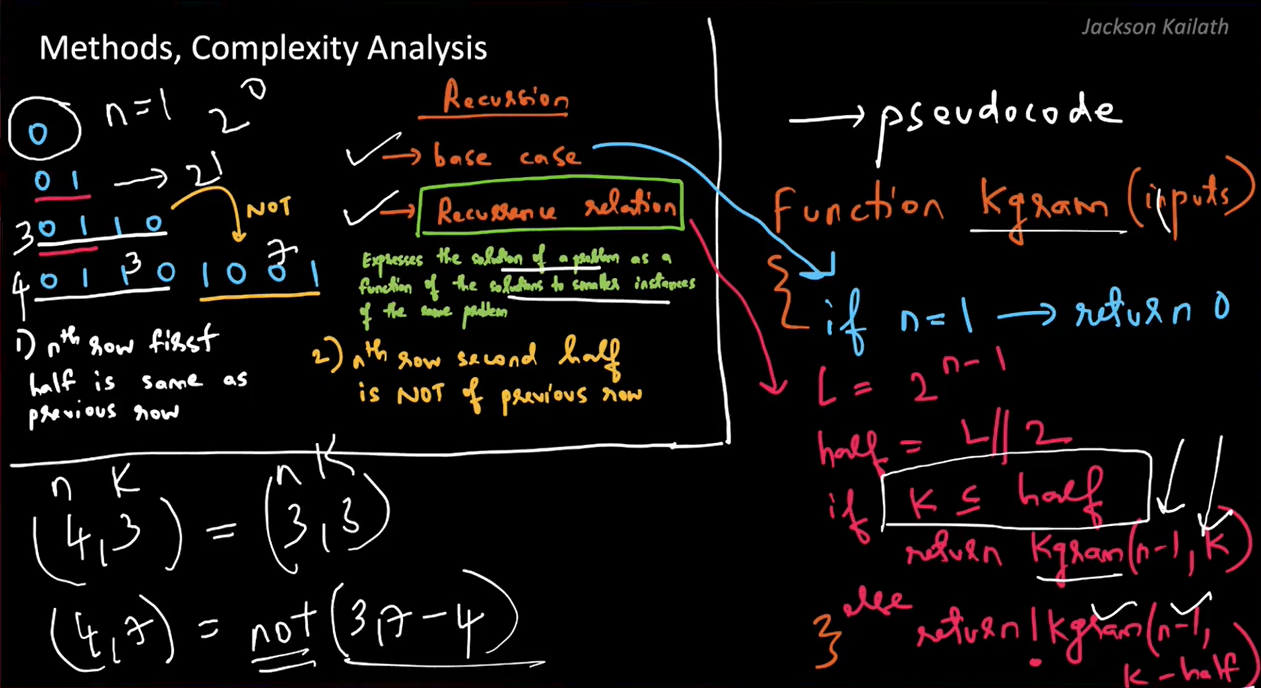 Jackson Kailath
Methods, Complexity Analysis
0 n=1 2^0
0 1 → 2^1
3 0 1 1 0 NOT
3 7
4 0 1 1 0 1 0 0 1
1) nth row first
half is same as
previous row
Recursion
→ base case
→ Recurrence relation
Expresses the solution of a problem as a
function of the solutions to smaller instances
of the same problem
2) nth row second half
is NOT of previous row
n K n K
(4,3) = (3,3)
(4,7) = not (3,7-4)
→ pseudocode
Function Kgram (inputs)
{
if n=1 → return 0
L = 2^n-1
half = L//2
if K ≤ half
return Kgram(n-1, K)
else return !Kgram(n-1,
} K-half)